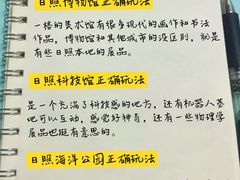 日照博物馆正确玩法
一楼的美术馆有很多现代的画作和书法
作品,博物馆和其他城市的没区别,就是
有些日照本地的展品。
日照科技馆正确玩法
是一个充满了科技感的地方,还有机器人基
地可以互动,感觉好神奇,还有一些物理学
展品也挺有意思的。
日照海洋公园正确玩法